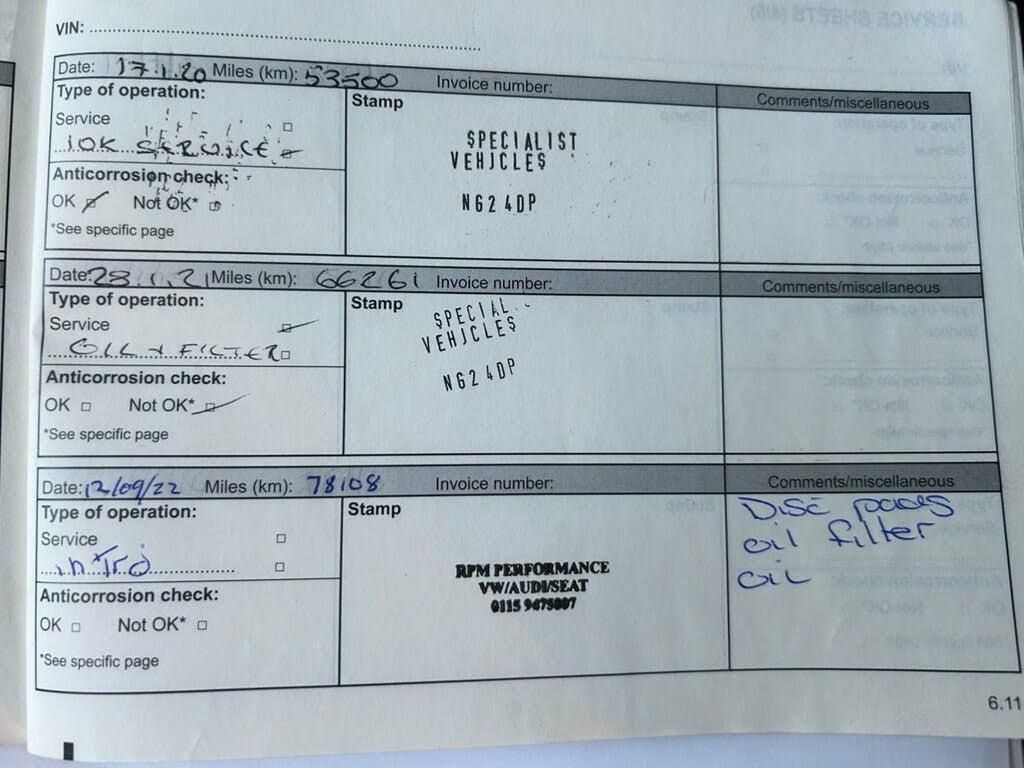 VIN:
Date: 17.1.20 Miles (km): 53500 Invoice number:
Type of operation:
Service
10K SERVICE
Anticorrosion check:
OK Not OK*
*See specific page
Stamp
SPECIALIST
VEHICLES
N62 4DP
Comments/miscellaneous
Date: 28.1.21 Miles (km): 66261 Invoice number:
Type of operation:
Service
OIL + FILTER
Anticorrosion check:
OK Not OK*
*See specific page
Stamp
SPECIAL
VEHICLES
N62 4DP
Comments/miscellaneous
Date: 12/09/22 Miles (km): 78108 Invoice number:
Type of operation:
Service
Anticorrosion check:
OK Not OK*
*See specific page
Stamp
RPM PERFORMANCE
VW/AUDI/SEAT
0115 9475007
Comments/miscellaneous
Disc pads
oil filter
oil
6.11